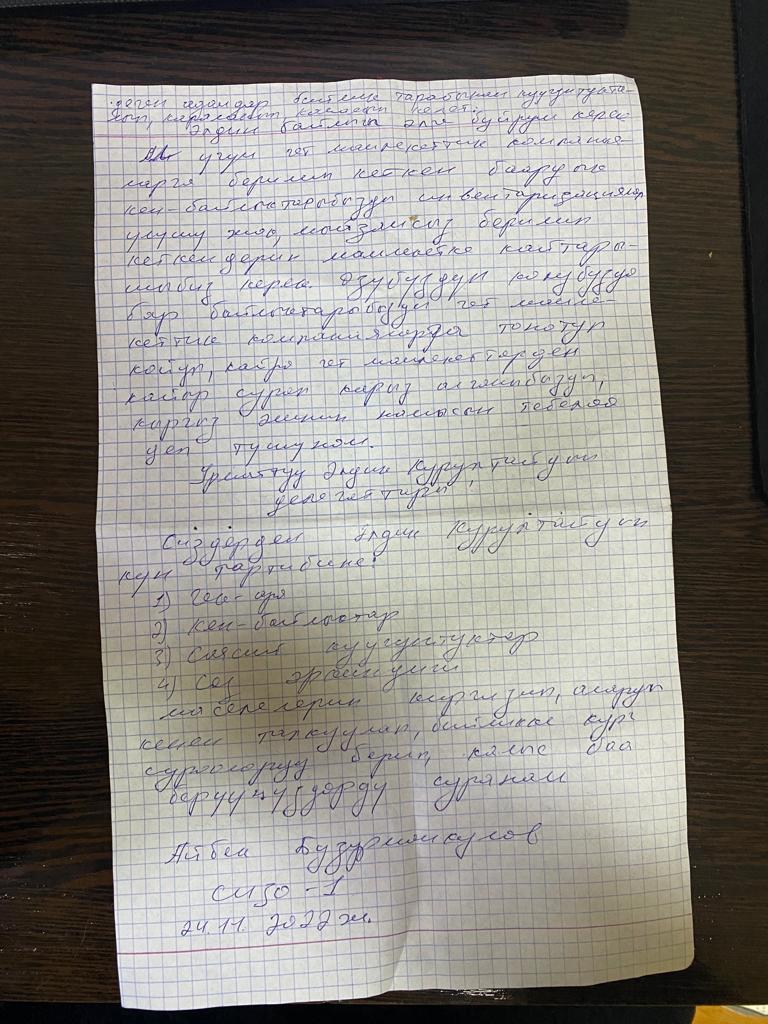 деген адамдар бийлик тарабынан куугунтукта-
лып, караланып, камалып келет.
Элдин байлыгы элге буйруш керек.
Ал үчүн чет мамлекеттик компания-
ларга берилип кеткен баардык
кен-байлыктарыбызды инвентаризациялап
үлүшү жок, мыйзамсыз берилип
кеткендерин мамлекетке кайтары-
шыбыз керек. Өзүбүздүн колубуздо
бар байлыктарыбызды чет мамле-
кеттик компанияларга тонотуп
коюп, кайра чет мамлекеттерден
кайыр сурап карыз алганыбызды,
кыргыз элинин намысын тебелөө
деп түшүнөм.
Урматтуу Элдик Курултайдын
делегаттары!
Сиздерден Элдик Курултайдын
күн тартибине:
1)
2) Кен-байлыктар
3) Саясий куугунтуктар
4) Сөз эркиндиги
маселерин киргизип, аларды
кенен талкуулап, бийликке курч
суроолорду берип, калыс баа
берүүңүздөрдү суранам
Айбек Бузурманкулов
СИЗО-1
24.11.2022ж.